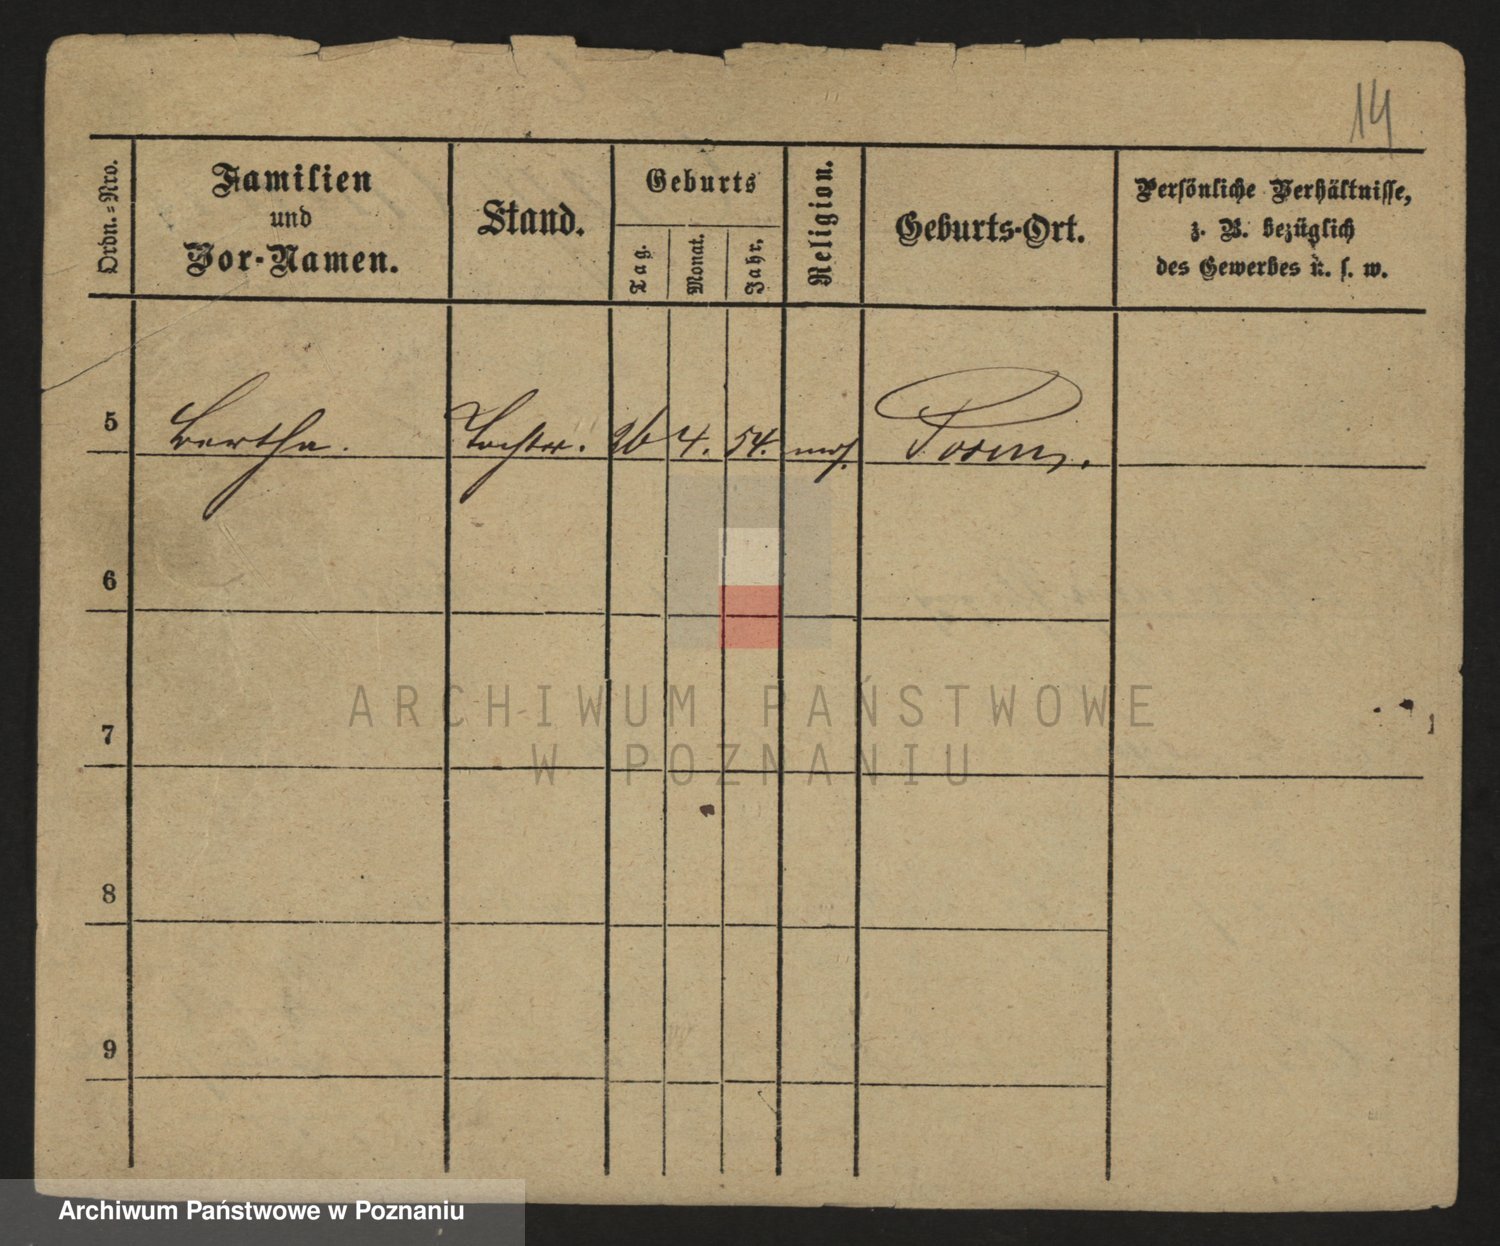 14
Ordn.-Nro.
Familien
und
Vor-Namen.
Stand.
Geburts
Tag.
Monat.
Jahr.
Religion.
Geburts-Ort.
Persönliche Verhältnisse,
z. B. bezüglich
des Gewerbes u. s. w.
5 Bertha. Tochter. 26 4. 54. mos. Posen.
6
7
8
9
ARCHIWUM PAŃSTWOWE
W POZNANIU
Archiwum Państwowe w Poznaniu